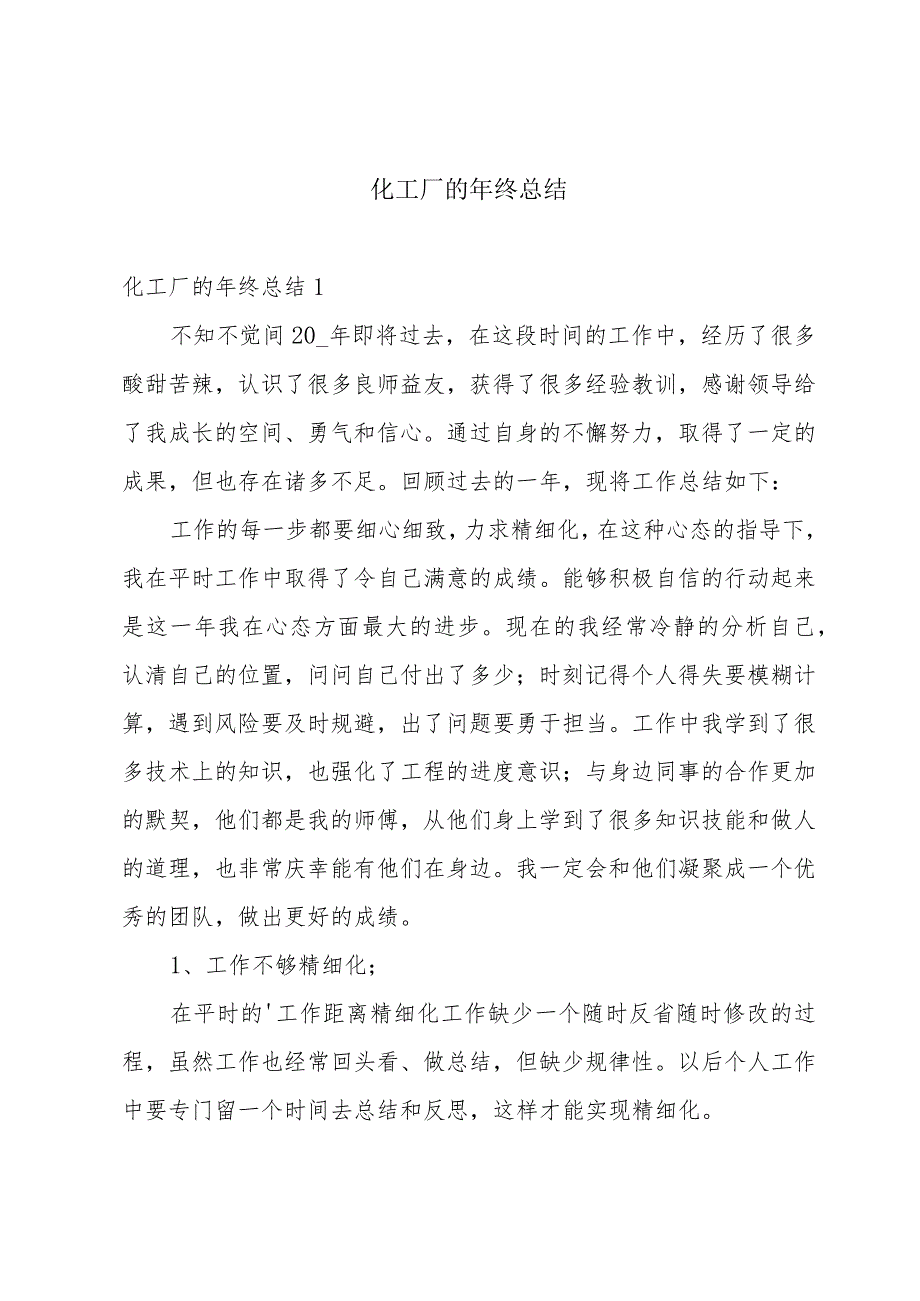 化工厂的年终总结
化工厂的年终总结1
不知不觉间20_年即将过去，在这段时间的工作中，经历了很多
酸甜苦辣，认识了很多良师益友，获得了很多经验教训，感谢领导给
了我成长的空间、勇气和信心。通过自身的不懈努力，取得了一定的
成果，但也存在诸多不足。回顾过去的一年，现将工作总结如下：
工作的每一步都要细心细致，力求精细化，在这种心态的指导下，
我在平时工作中取得了令自己满意的成绩。能够积极自信的行动起来
是这一年我在心态方面最大的进步。现在的我经常冷静的分析自己，
认清自己的位置，问问自己付出了多少；时刻记得个人得失要模糊计
算，遇到风险要及时规避，出了问题要勇于担当。工作中我学到了很
多技术上的知识，也强化了工程的进度意识；与身边同事的合作更加
的默契，他们都是我的师傅，从他们身上学到了很多知识技能和做人
的道理，也非常庆幸能有他们在身边。我一定会和他们凝聚成一个优
秀的团队，做出更好的成绩。
1、工作不够精细化；
在平时的'工作距离精细化工作缺少一个随时反省随时修改的过
程，虽然工作也经常回头看、做总结，但缺少规律性。以后个人工作
中要专门留一个时间去总结和反思，这样才能实现精细化。